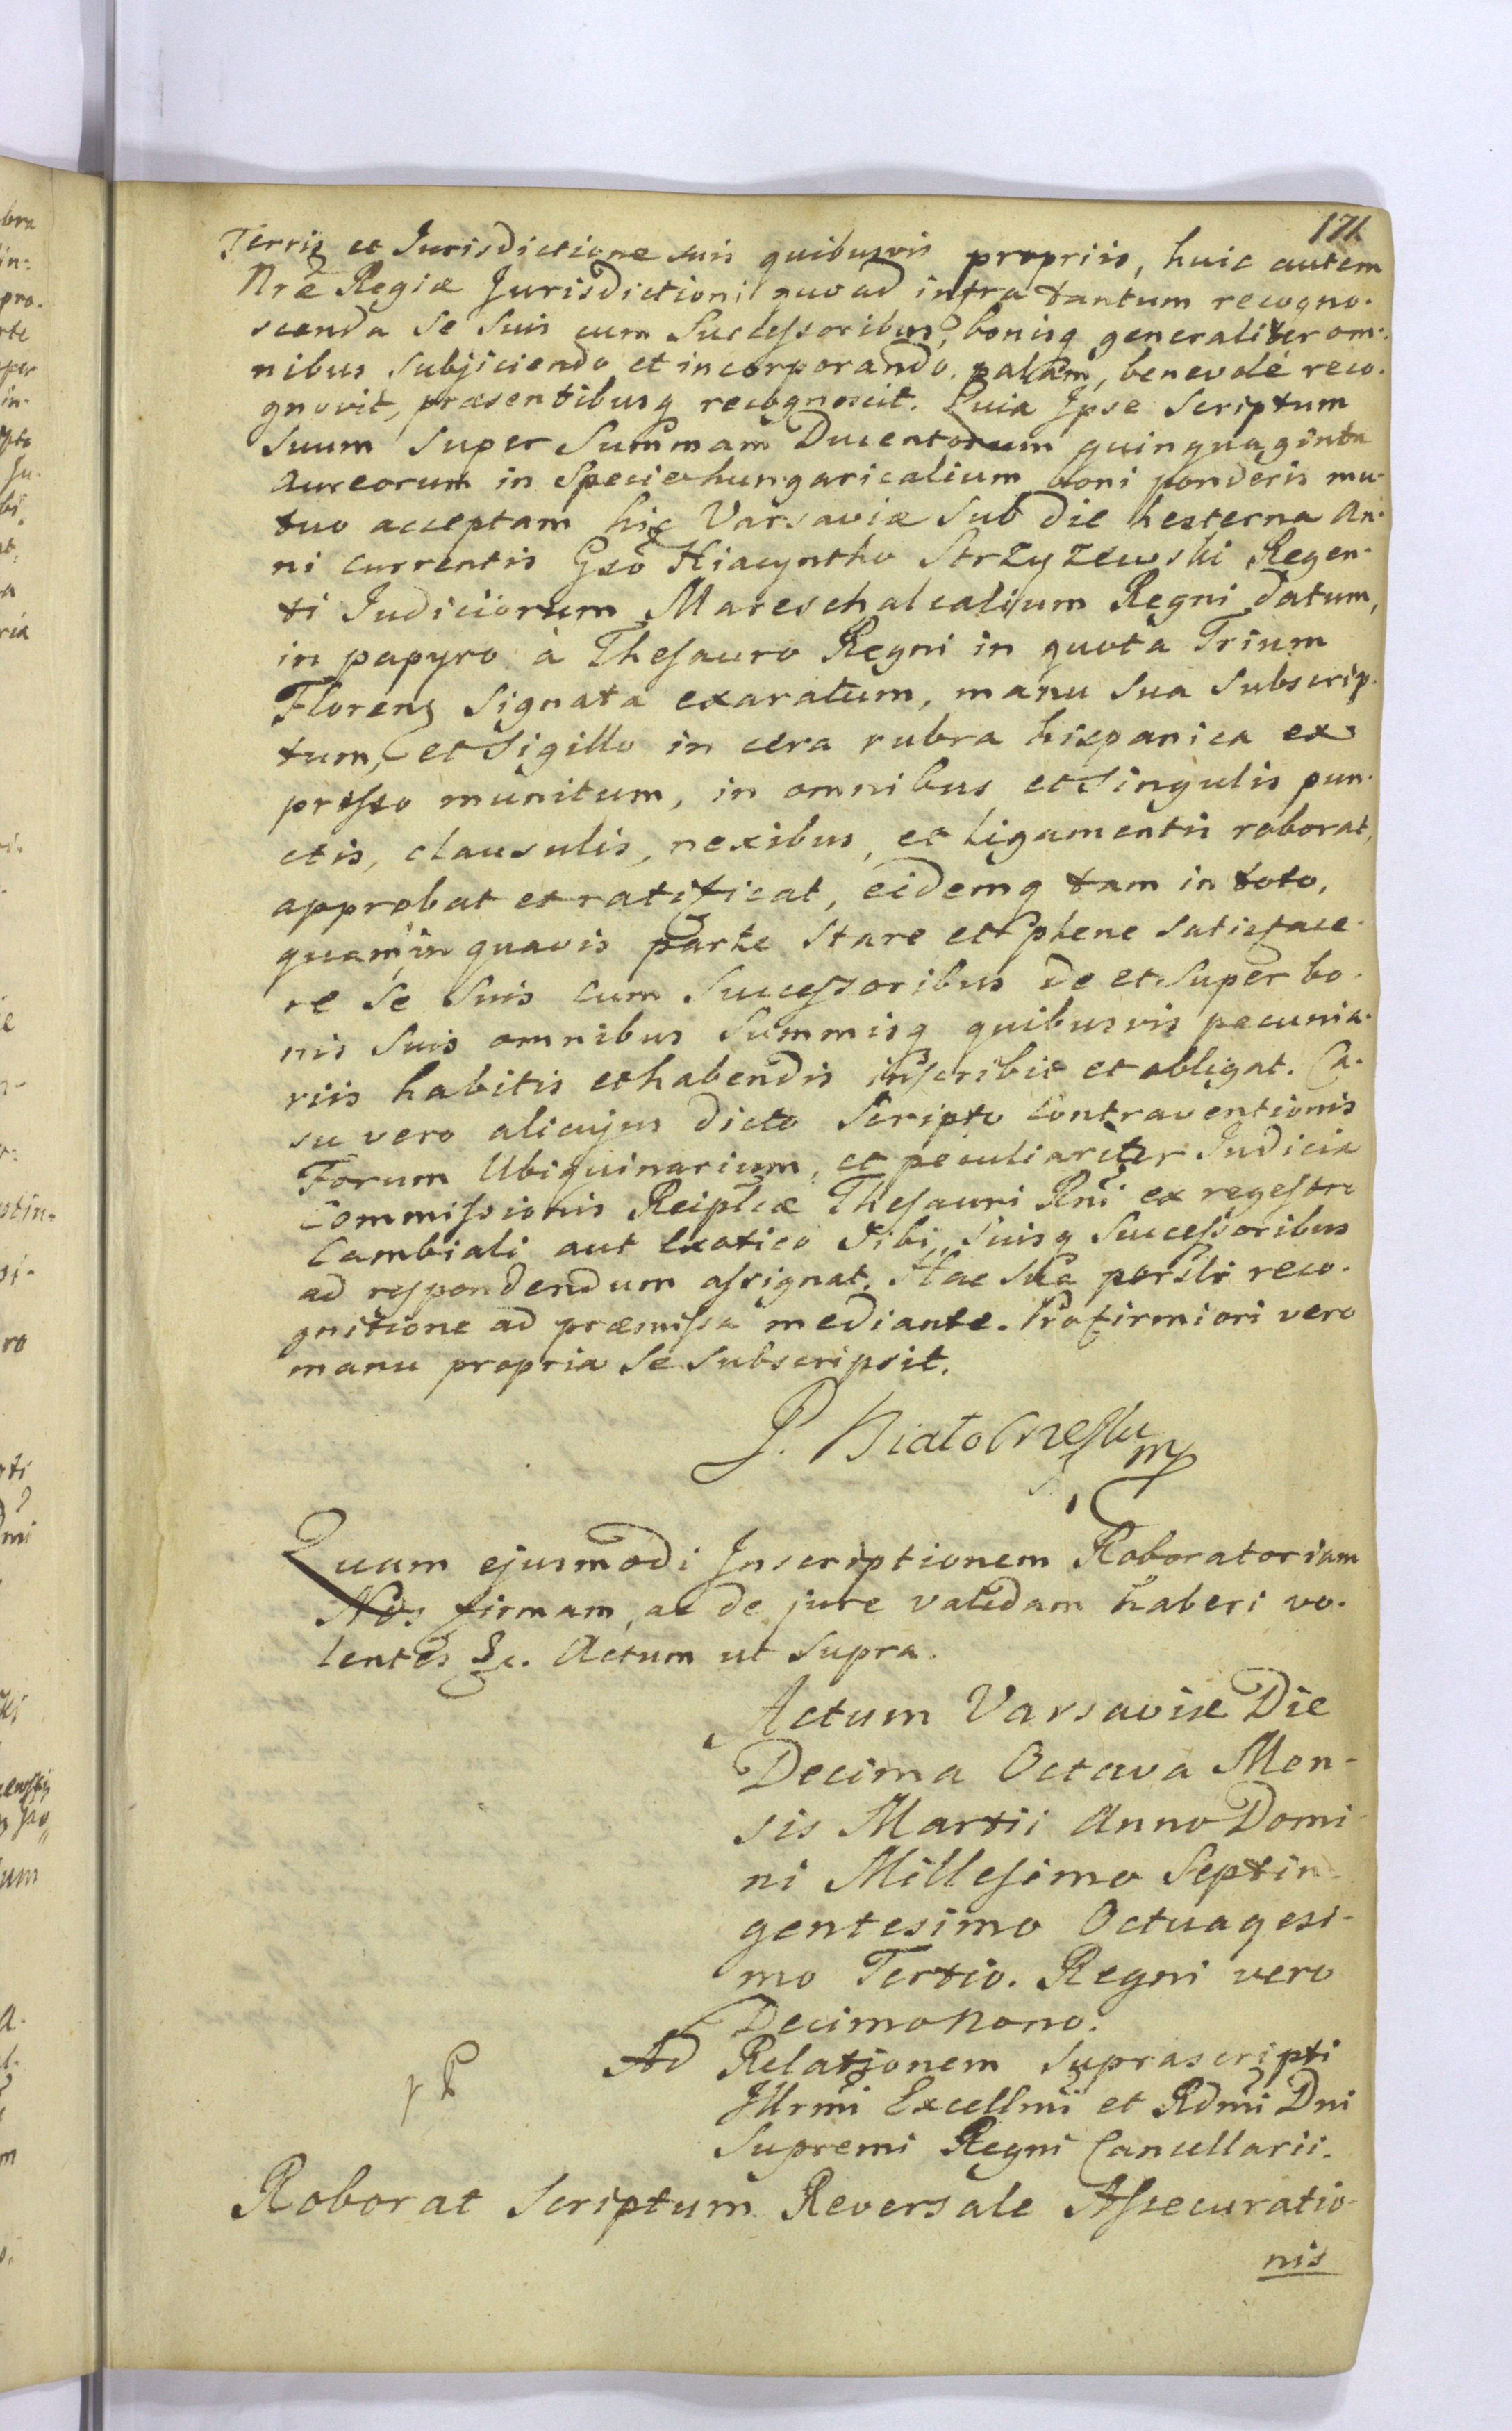 171
Terris et Jurisdictione suis quibusvis propriis, huic autem
Nrae Regiæ Jurisdictioni quoad infra tantum recogno-
scenda se suis cum Successoribus, bonisq generaliter om-
nibus subjiciendo et incorporando. palam, benevolé reco-
gnovit, præsentibusq recognoscit. Quia Ipse Scriptum
suum super Summam Ducentorum quinquaginta
Aureorum in Specie hungaricalium boni ponderis mu-
tuo acceptam hic Varsaviæ sub die hesterna An-
ni currentis Gso Hiacyntho Strzyzewski Regen-
ti Judiciorum Mareschalcalium Regni datum,
in papyro à Thesauro Regni in quota Trium
Floren signata exaratum, manu sua subscrip-
tum, et Sigillo in cera rubra hispanica ex
presso munitum, in omnibus et singulis pun-
ctis, clausulis, nexibus, et ligamentis roborat,
approbat et ratificat, eidemq tam in toto,
quam in quavis parte stare et plene satisface-
re se suis cum Successoribus de et super bo-
nis suis omnibus Summisq quibusvis pecunia-
riis habitis et habendis inscribit et obligat. Ca-
su vero alicujus dicto Scripto Contraventionis
Forum Ubiquinarium, et peculiariter Judicia
Commissionis Reiplcæ Thesauri Rni ex regestro
Cambiali aut Exotico sibi, suisq Successoribus
ad respondendum assignat. Hac sua persli reco-
gnitione ad præmissa mediante. Pro firmiori vero
manu propria se subscripsit.
P. mp
Quam ejusmodi Inscriptionem Roboratoriam
Nos firmam, ac de jure validam haberi vo-
lentes &c. Actum ut supra.
Actum Varsaviæ Die
Decima Octava Men-
sis Martii Anno Domi-
ni Millesimo Septin-
gentesimo Octuagesi-
mo Tertio. Regni vero
Decimo nono.
Ad Relationem suprascripti
Illrmi Excellmi et Rdmi Dni
Supremi Regni Cancellarii.
Roborat Scriptum Reversale Assecuratio-
nis